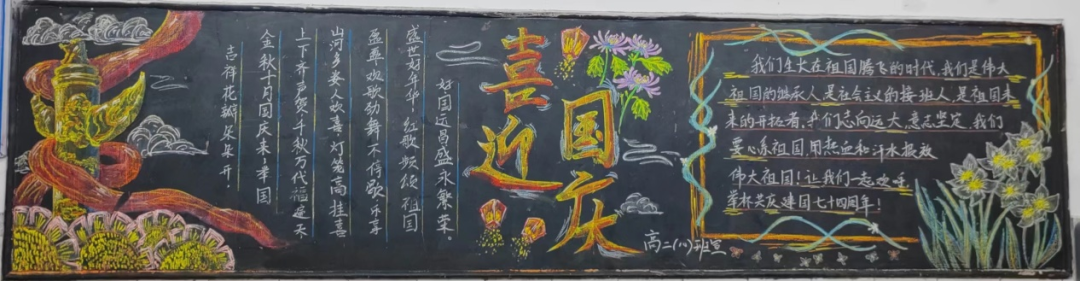 吉祥花瓣朵朵开.
金秋十月国庆来,举国
上下齐声贺千秋万代福连天
山河多娇人欢喜,灯笼高挂喜
欢歌劲舞不停歇,乐享
盛世好年华,红歌频颂祖国
好国运昌盛永繁荣。
喜迎
国庆
我们生大在祖国腾飞的时代,我们是伟大
祖国的继承人,是社会主义的接班人,是祖国未
来的开拓者,我们志向远大,意志坚定,我们
要心系祖国,用热血和汗水报效
伟大祖国!让我们一起欢呼
举杯共庆建国七十四周年!
高二(八)班宣